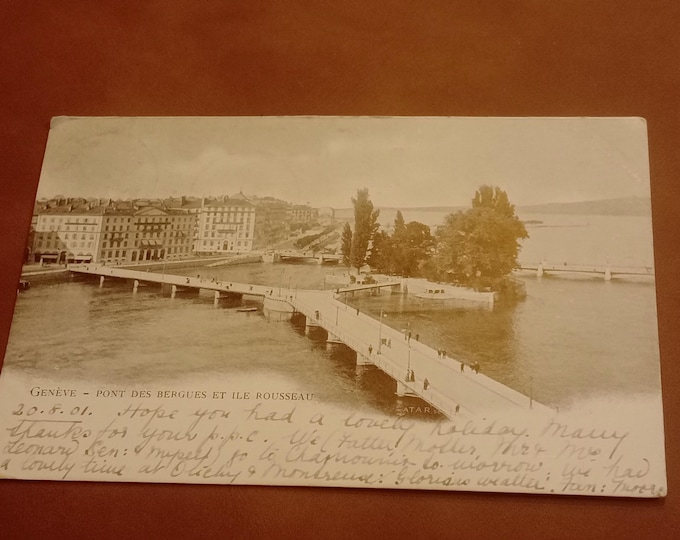 GENÈVE – PONT DES BERGUES ET ILE ROUSSEAU
20.8.01. Hope you had a lovely holiday. Many
thanks for your p.p.c. We (Father Mother Mr & Mrs
Leonard &: myself) go to Chamounix to-morrow. We had
a lovely time at & Montreux: Glorious weather. Moore